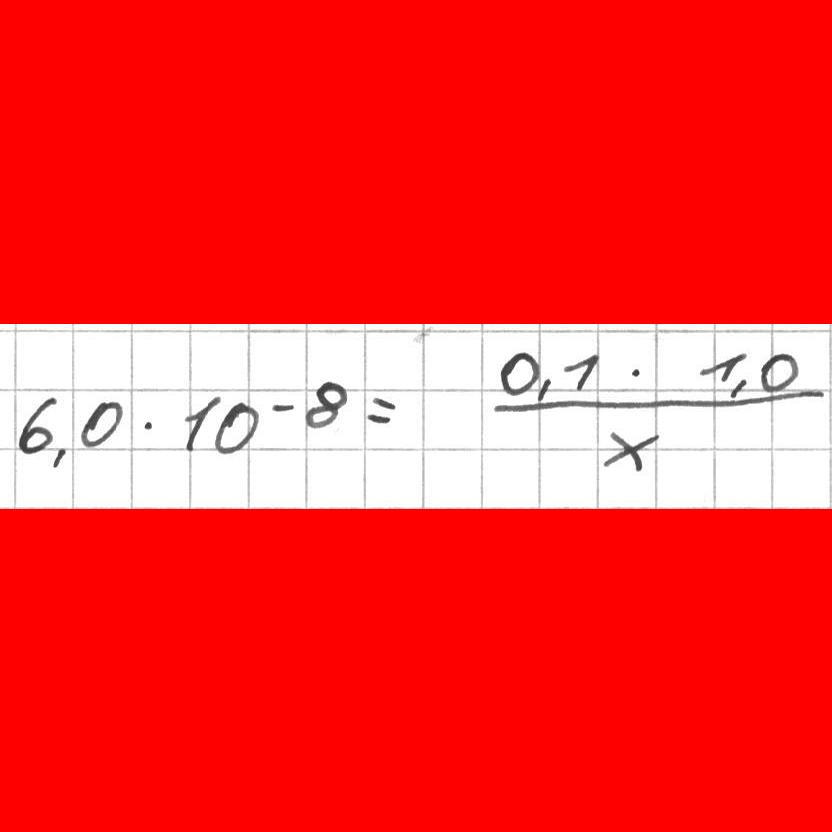 6,0 · 10⁻⁸ = \frac{0,1 · 1,0}{x}